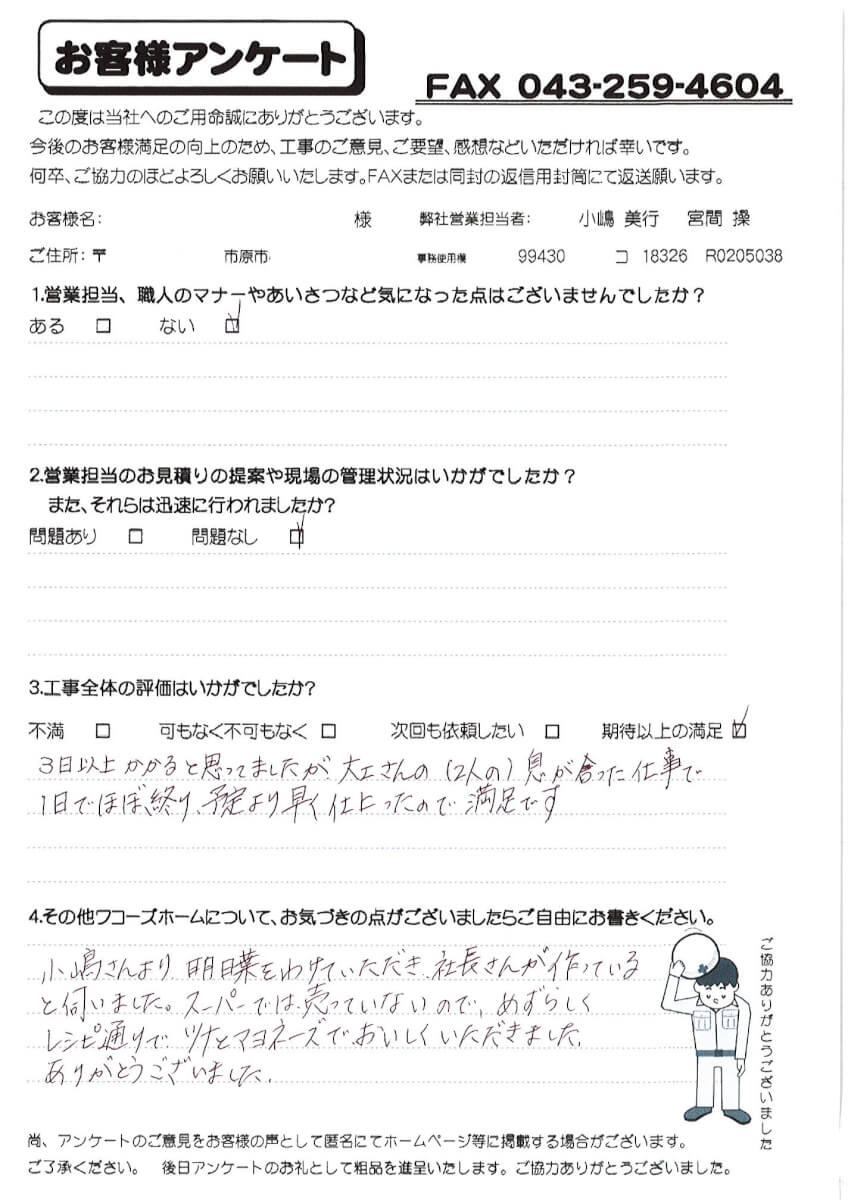 お客様アンケート
FAX 043-259-4604
この度は当社へのご用命誠にありがとうございます。
今後のお客様満足の向上のため、工事のご意見、ご要望、感想などいただければ幸いです。
何卒、ご協力のほどよろしくお願いいたします。FAXまたは同封の返信用封筒にて返送願います。
お客様名: 様 弊社営業担当者: 小嶋 美行 宮間 操
ご住所:〒 市原市 事務使用欄 99430 コ 18326 R0205038
1.営業担当、職人のマナーやあいさつなど気になった点はございませんでしたか?
ある □ ない ☑
2.営業担当のお見積りの提案や現場の管理状況はいかがでしたか?
また、それらは迅速に行われましたか?
問題あり □ 問題なし ☑
3.工事全体の評価はいかがでしたか?
不満 □ 可もなく不可もなく □ 次回も依頼したい □ 期待以上の満足 ☑
3日以上かかると思ってましたが、大工さんの(2人の)息が合った仕事で
1日でほぼ終り、予定より早く仕上ったので満足です
4.その他ワコーズホームについて、お気づきの点がございましたらご自由にお書きください。
小嶋さんより明日葉をわけていただき、社長さんが作っている
と伺いました。スーパーでは売っていないので、めずらしく
レシピ通りでツナとマヨネーズでおいしくいただきました。
ありがとうございました。
ご協力ありがとうございました
尚、アンケートのご意見をお客様の声として匿名にてホームページ等に掲載する場合がございます。
ご了承ください。 後日アンケートのお礼として粗品を進呈いたします。ご協力ありがとうございました。